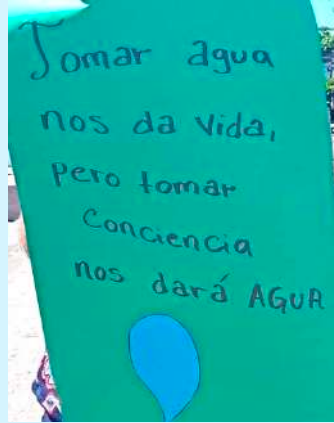 Tomar agua
nos da vida,
pero tomar
conciencia
nos dará AGUA